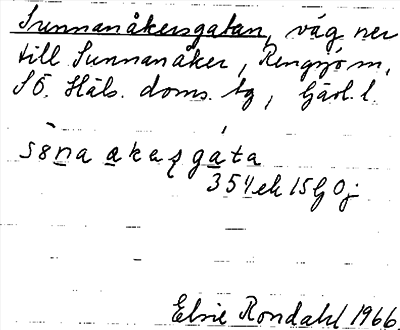 Sunnanåkersgatan, väg ner
till Sunnanåker, Rengsjö sn,
SÖ. Häls. doms. tg, Gävl. l.
354 ek 15G 0j
Elsie Rondahl 1966.